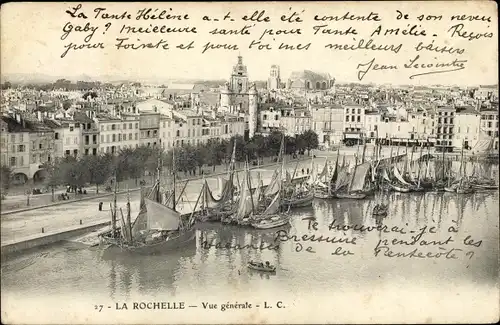 La Tante Hélène a-t-elle été contente de son neveu
Gaby? Meilleure santé pour Tante Amélie. Reçois
pour Toinette et pour toi mes meilleurs baisers
Jean Lecointre
Te trouverai-je à
Bressuire pendant les
vacances de la Pentecôte?
27 - LA ROCHELLE - Vue générale - L. C.